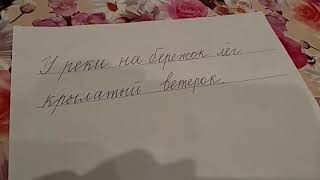 У реки на бережок лёг
крылатый ветерок.